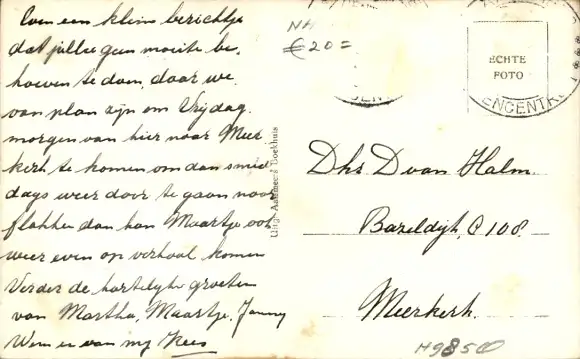 Even een klein berichtje
dat jullie geen moeite be-
hoeven te doen, daar we
van plan zijn om Vrijdag
morgen van hier naar Meer
kerk te komen om dan smid
days weer door te gaan naar
flakkee dan kan Maartje ook
weer even op verhaal komen
Verder de hartelijke groeten
van Martha, Maartje, Janny
Wim en van mij Kees
NH
€20=
ECHTE
FOTO
ENCENTR
Uitg. Boekhuis
Dhr D van Halm
Bazeldijk, C 108.
Meerkerk.
H9850